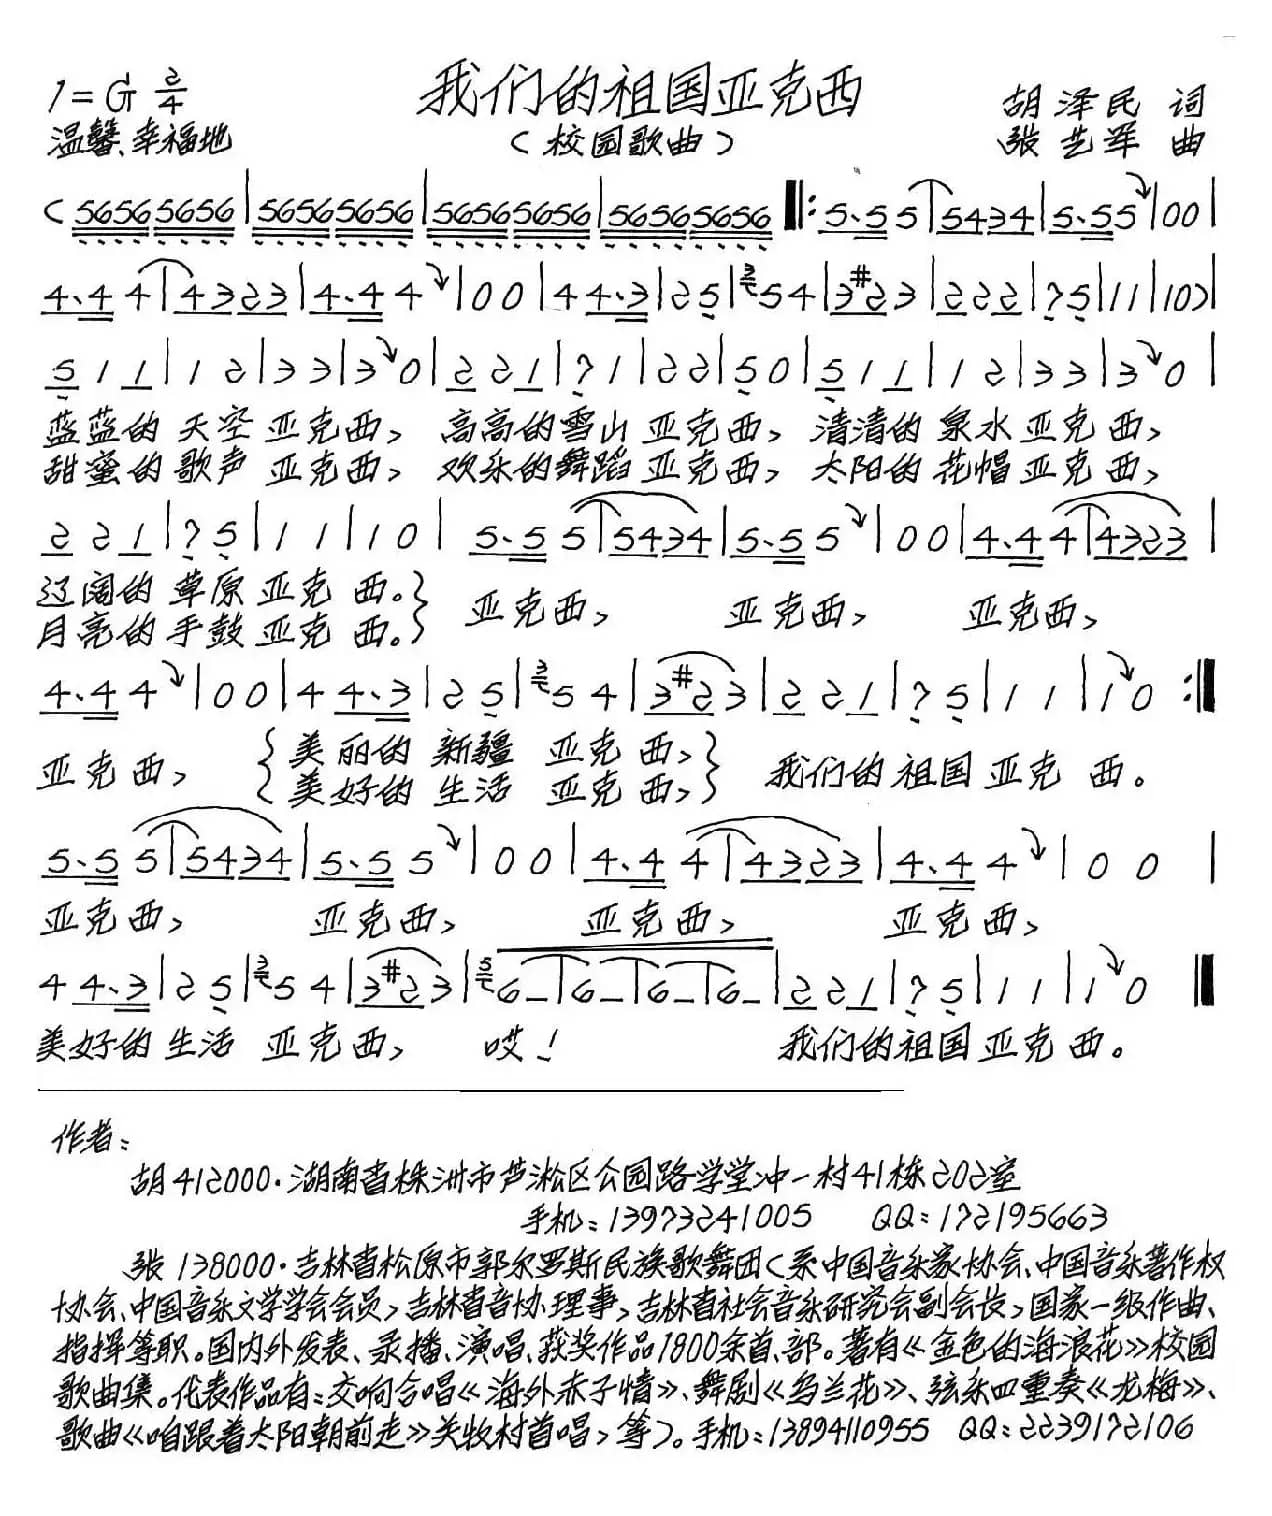 1=G 2/4
我们的祖国亚克西
胡泽民 词
温馨、幸福地
(校园歌曲)
张艺军 曲
( 5656 5656 | 5656 5656 | 5656 5656 | 5656 5656 ‖: 5.5 5 | 5434 | 5.5 5 | 0 0 |
4.4 4 | 4323 | 4.4 4 | 0 0 | 4 4.3 | 2 5 | 3 5 4 | 3 #2 3 | 2 2 2 | 7 5 | 1 1 | 1 0 ) |
5 1 1 | 1 2 | 3 3 | 3 0 | 2 2 1 | 7 1 | 2 2 | 5 0 | 5 1 1 | 1 2 | 3 3 | 3 0 |
蓝蓝的 天空 亚克西, 高高的雪山 亚克西, 清清的 泉水 亚克西,
甜蜜的 歌声 亚克西, 欢乐的舞蹈 亚克西, 太阳的 花帽 亚克西,
2 2 1 | 7 5 | 1 1 | 1 0 | 5.5 5 | 5434 | 5.5 5 | 0 0 | 4.4 4 | 4323 |
辽阔的 草原 亚克西。} 亚克西, 亚克西, 亚克西,
月亮的 手鼓 亚克西。}
4.4 4 | 0 0 | 4 4.3 | 2 5 | 3 5 4 | 3 #2 3 | 2 2 1 | 7 5 | 1 1 | 1 0 :‖
亚克西, {美丽的 新疆 亚克西,} 我们的祖国 亚克西。
{美好的 生活 亚克西,}
5.5 5 | 5434 | 5.5 5 | 0 0 | 4.4 4 | 4323 | 4.4 4 | 0 0 |
亚克西, 亚克西, 亚克西, 亚克西,
4 4.3 | 2 5 | 3 5 4 | 3 #2 3 | 5 6 - | 6 - | 6 - | 6 - | 2 2 1 | 7 5 | 1 1 | 1 0 ‖
美好的 生活 亚克西, 哎! 我们的祖国 亚克西。
作者:
胡412000·湖南省株洲市芦淞区公园路学堂冲一村41栋202室
手机:13973241005 QQ:172195663
张 138000·吉林省松原市郭尔罗斯民族歌舞团(系中国音乐家协会、中国音乐著作权
协会、中国音乐文学学会会员,吉林省音协理事,吉林省社会音乐研究会副会长,国家一级作曲、
指挥等职。国内外发表、录播、演唱、获奖作品1800余首、部。著有《金色的海浪花》校园
歌曲集。代表作品有:交响合唱《海外赤子情》、舞剧《乌兰花》、弦乐四重奏《龙梅》、
歌曲《咱跟着太阳朝前走》关牧村首唱,等)。手机:13894110955 QQ:2239172106